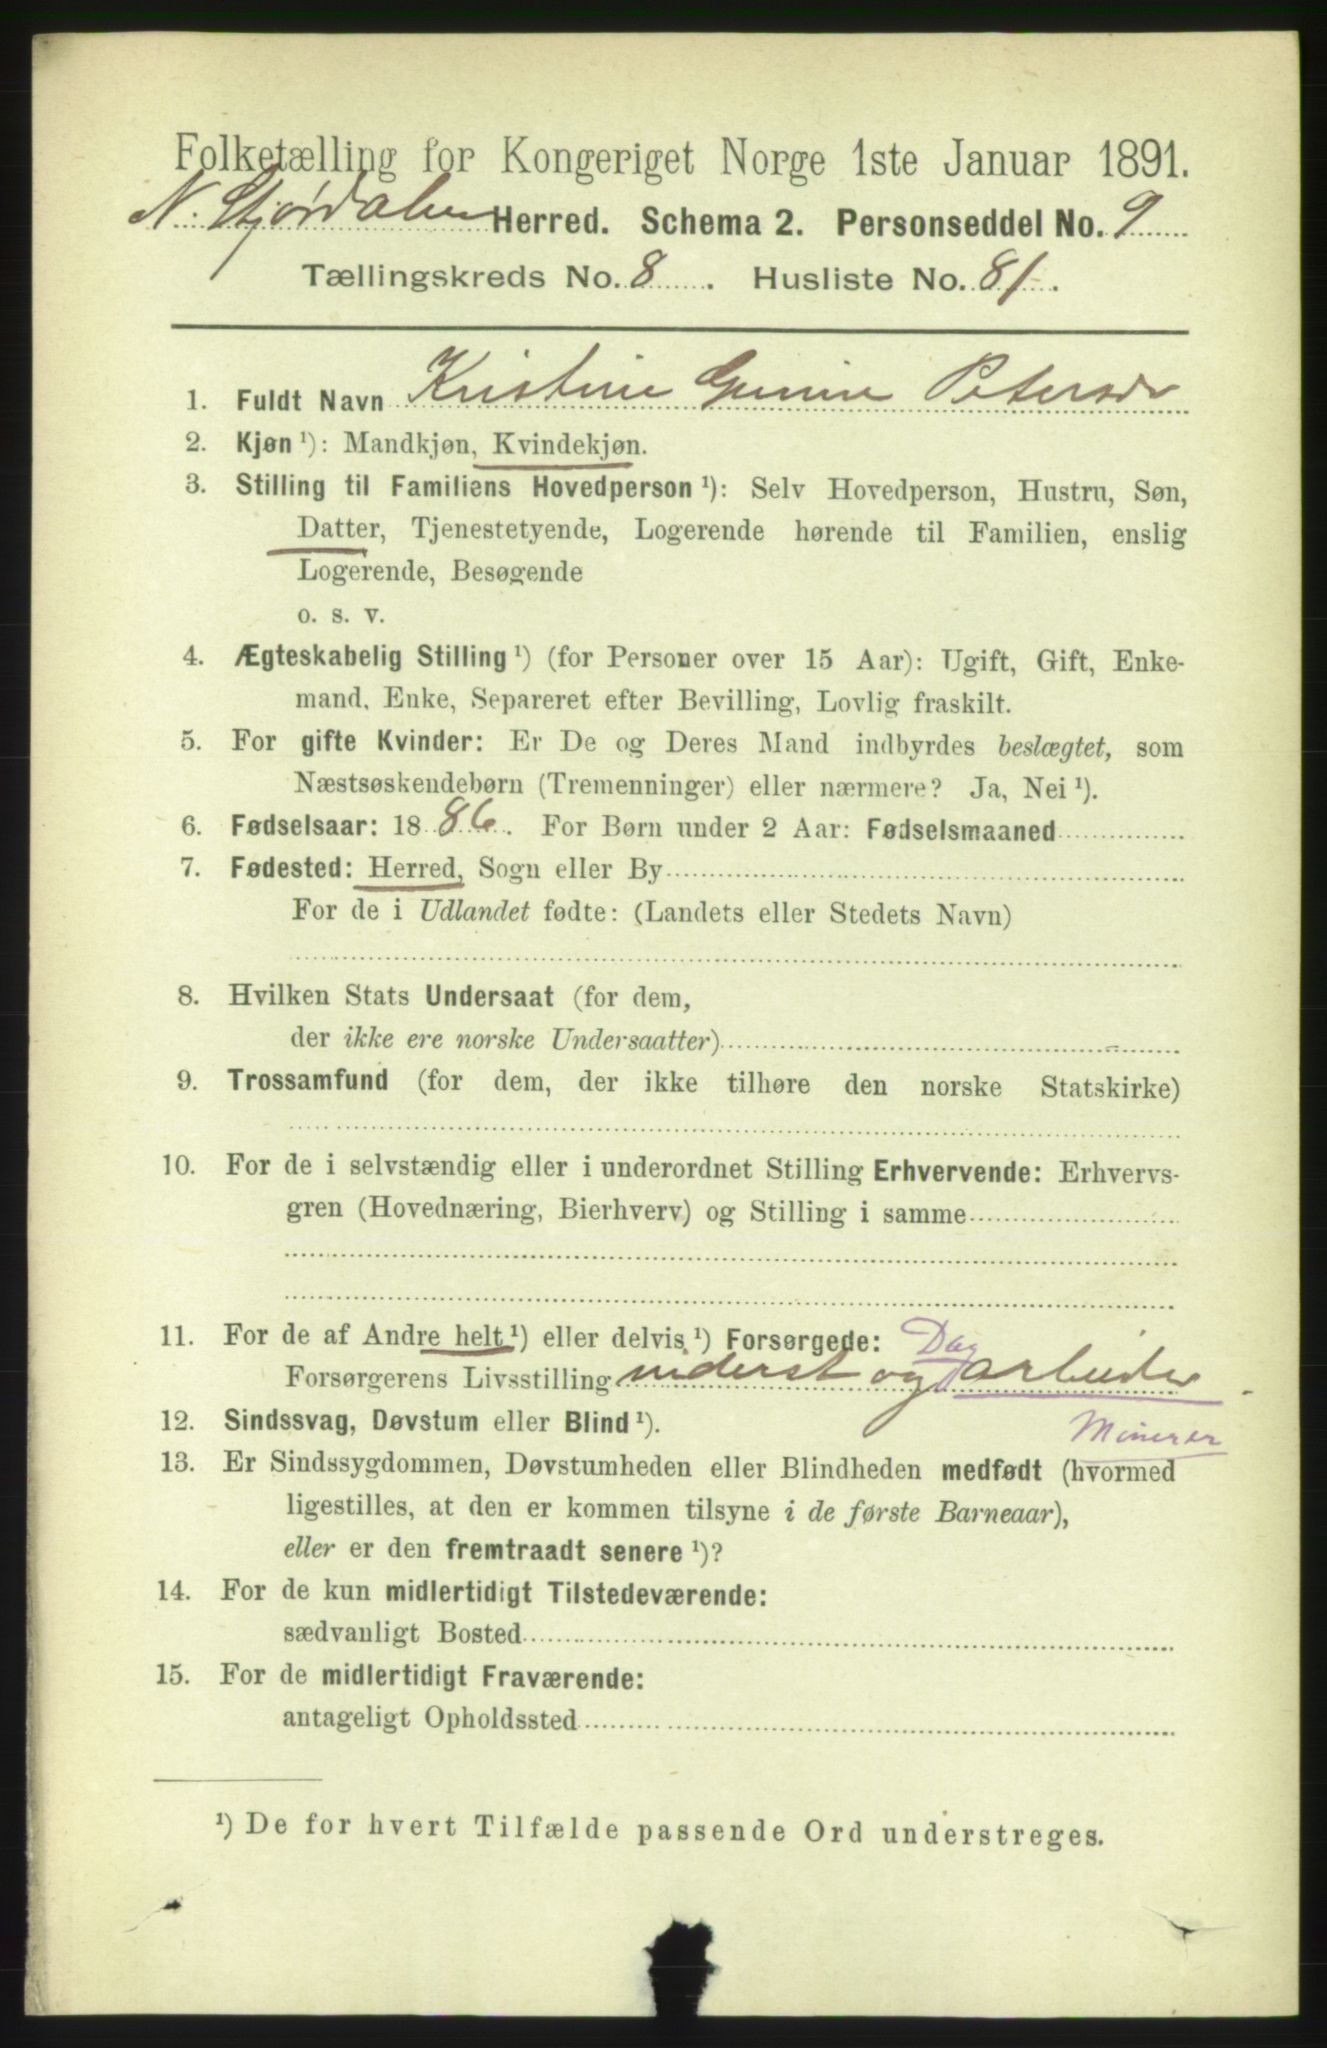 Folketælling for Kongeriget Norge 1ste Januar 1891.
N. Stjørdalen Herred. Schema 2. Personseddel No. 9
Tællingskreds No. 8. Husliste No. 81.
1. Fuldt Navn Kristine Petersdr
2. Kjøn ¹): Mandkjøn, Kvindekjøn.
3. Stilling til Familiens Hovedperson ¹): Selv Hovedperson, Hustru, Søn,
Datter, Tjenestetyende, Logerende hørende til Familien, enslig
Logerende, Besøgende
o. s. v.
4. Ægteskabelig Stilling ¹) (for Personer over 15 Aar): Ugift, Gift, Enke-
mand, Enke, Separeret efter Bevilling, Lovlig fraskilt.
5. For gifte Kvinder: Er De og Deres Mand indbyrdes beslægtet, som
Næstsøskendebørn (Tremenninger) eller nærmere? Ja, Nei ¹).
6. Fødselsaar: 1886. For Børn under 2 Aar: Fødselsmaaned
7. Fødested: Herred, Sogn eller By
For de i Udlandet fødte: (Landets eller Stedets Navn)
8. Hvilken Stats Undersaat (for dem,
der ikke ere norske Undersaatter)
9. Trossamfund (for dem, der ikke tilhøre den norske Statskirke)
10. For de i selvstændig eller i underordnet Stilling Erhvervende: Erhvervs-
gren (Hovednæring, Bierhverv) og Stilling i samme
11. For de af Andre helt ¹) eller delvis ¹) Forsørgede: Dag
Forsørgerens Livsstilling inderst og arbeider
12. Sindssvag, Døvstum eller Blind ¹). Minerer
13. Er Sindssygdommen, Døvstumheden eller Blindheden medfødt (hvormed
ligestilles, at den er kommen tilsyne i de første Barneaar),
eller er den fremtraadt senere ¹)?
14. For de kun midlertidigt Tilstedeværende:
sædvanligt Bosted
15. For de midlertidigt Fraværende:
antageligt Opholdssted
¹) De for hvert Tilfælde passende Ord understreges.